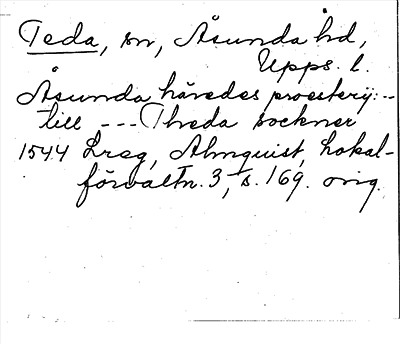 Teda, sn, Åsunda hd,
Upps. l.
Åsunda häredes proesterij: --
till --- Threda sockner
1544 Lreg, Almquist, Lokal-
förvaltn. 3, s. 169. orig.